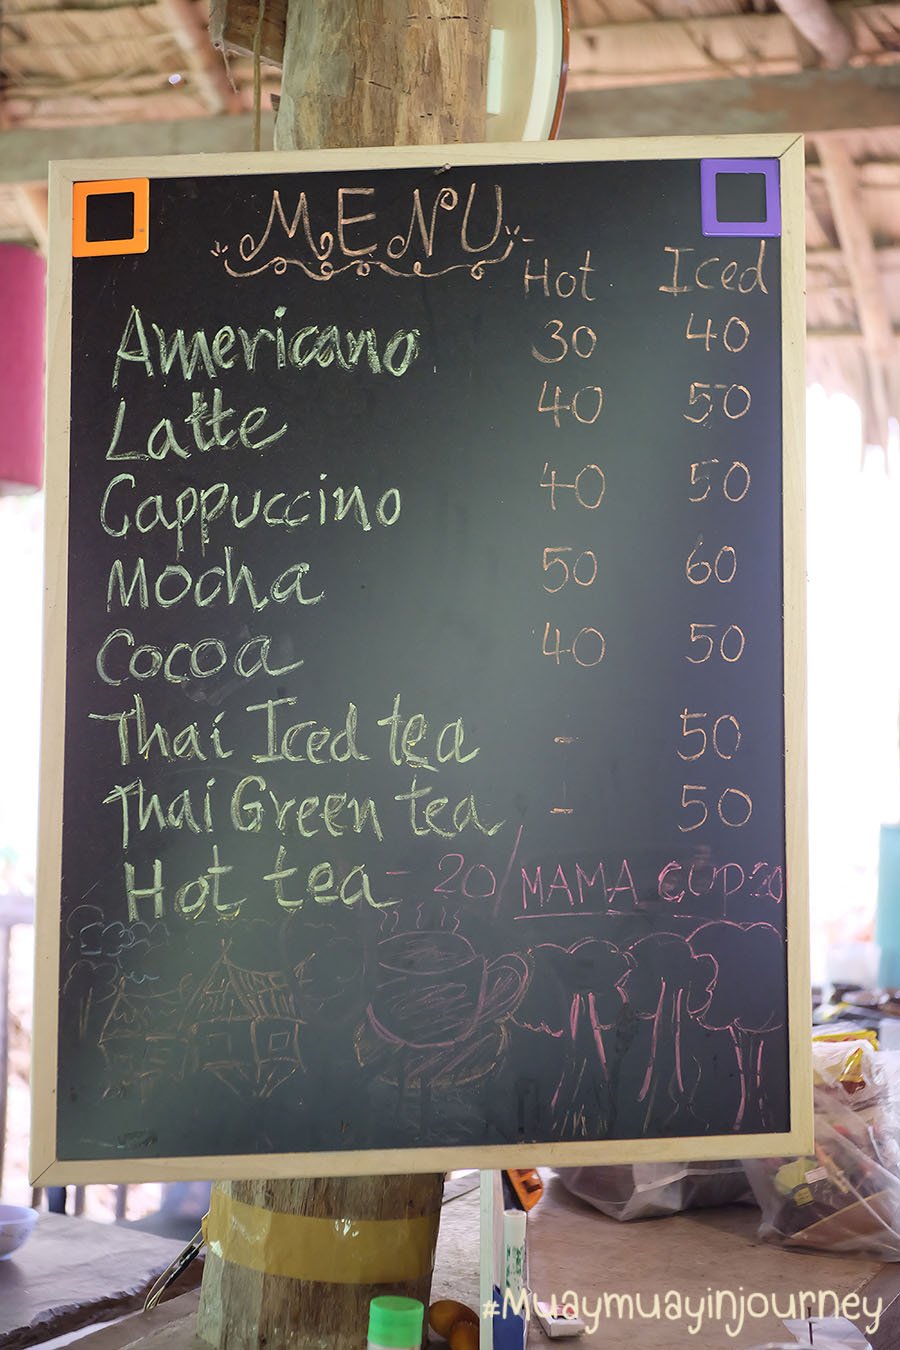 MENU
Hot Iced
Americano 30 40
Latte 40 50
Cappuccino 40 50
Mocha 50 60
Cocoa 40 50
Thai Iced tea - 50
Thai Green tea - 50
Hot tea - 20 / MAMA CUP 20
#Muaymuayinjourney